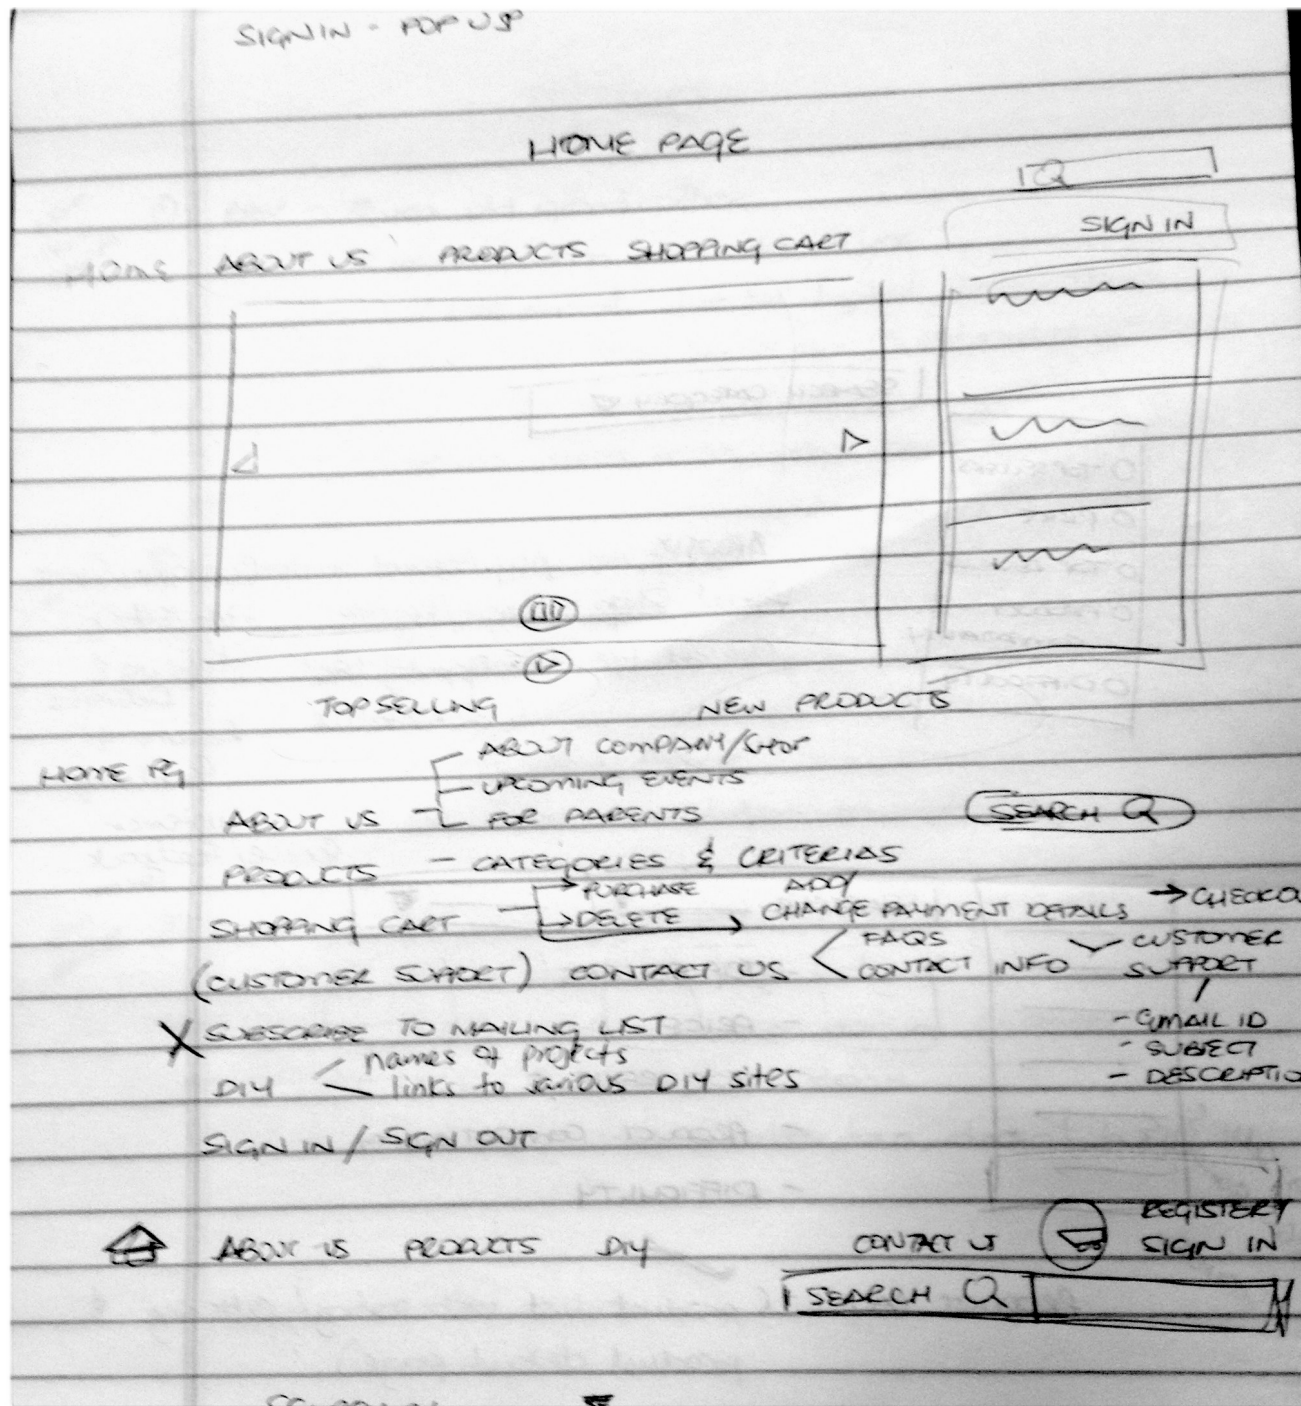 SIGN IN - POP UP
HOME PAGE
SIGN IN
HOME ABOUT US PRODUCTS SHOPPING CART
TOP SELLING NEW PRODUCTS
HOME PG
ABOUT COMPANY/SHOP
UPCOMING EVENTS
ABOUT US - FOR PARENTS
SEARCH
PRODUCTS - CATEGORIES & CRITERIAS
PURCHASE ADD/
SHOPPING CART DELETE → CHANGE PAYMENT DETAILS → CHECKOU
FAQS
(CUSTOMER SUPPORT) CONTACT US CONTACT INFO
CUSTOMER
SUPPORT
- EMAIL ID
- SUBJECT
- DESCRIPTIO
X SUBSCRIBE TO MAILING LIST
names of projects
DIY links to various DIY sites
SIGN IN / SIGN OUT
ABOUT US PRODUCTS DIY CONTACT US
REGISTER/
SIGN IN
SEARCH